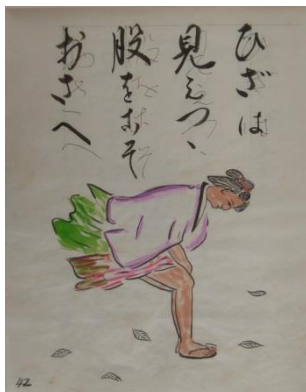 ひざは
見えつゝ
股をこそ
おさへ
42